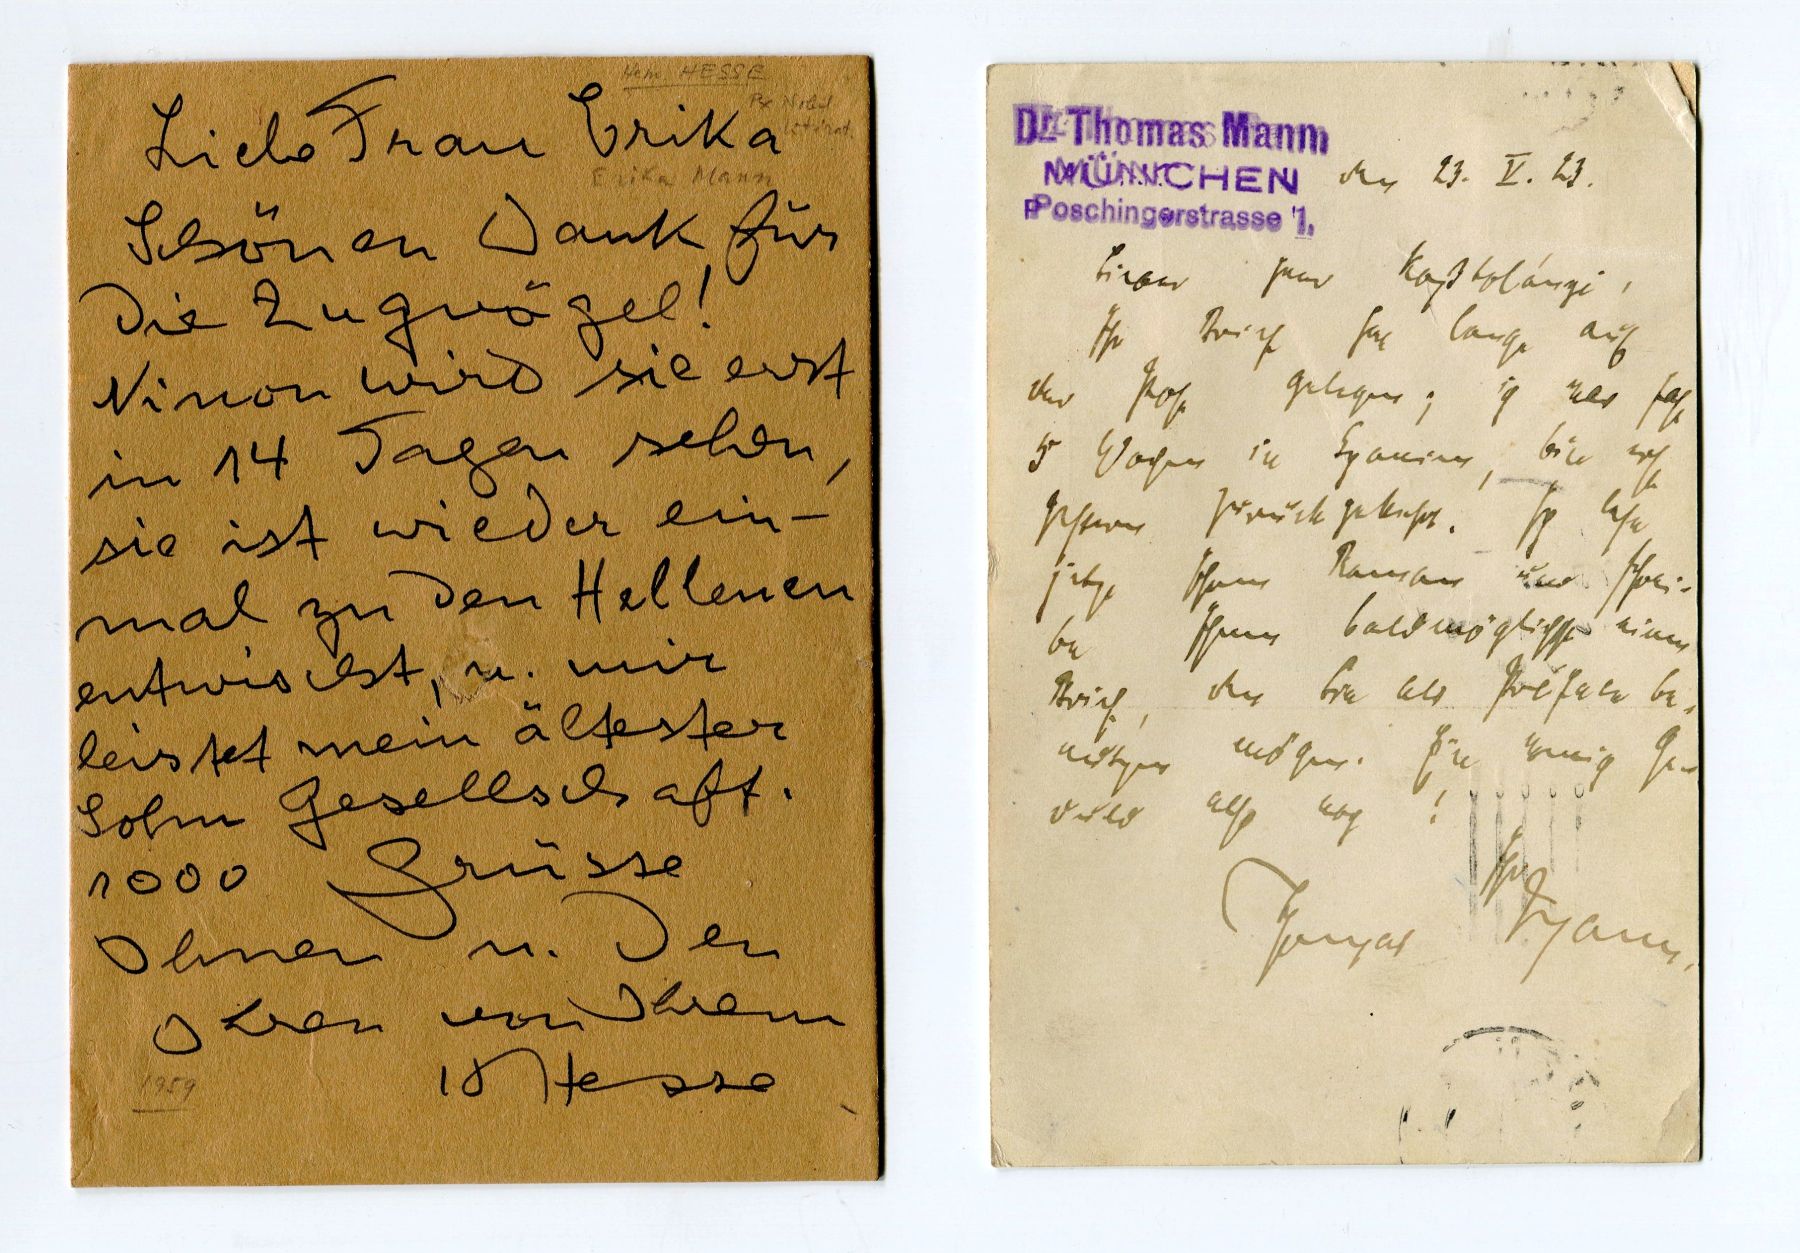 Herm. HESSE
Px Nobel
Literat.
Liebe Frau Erika
Erika Mann
Schönen Dank für
die Zugvögel!
Ninon wird sie erst
in 14 Tagen sehen,
sie ist wieder ein-
mal zu den Hellenen
entwischt, u. mir
leistet mein ältester
Sohn Gesellschaft.
1000 Grüsse
Ihnen u. den
Ihren von Ihrem
H Hesse
1959
Dr. Thomas Mann
MÜNCHEN
Poschingerstrasse 1.
den 23. V. 23.
Lieber Herr Koßtolányi,
Ihr Brief hat lange auf
der Post gelegen; ich war fast
5 Wochen in Spanien, bin erst
gestern zurückgekehrt. Ich lese
jetzt Ihren Roman und schrei-
be Ihnen baldmöglichst einen
Brief, den Sie als Vorrede be-
nutzen mögen. Ein wenig Ge-
duld also noch!
Ihr
Thomas Mann.